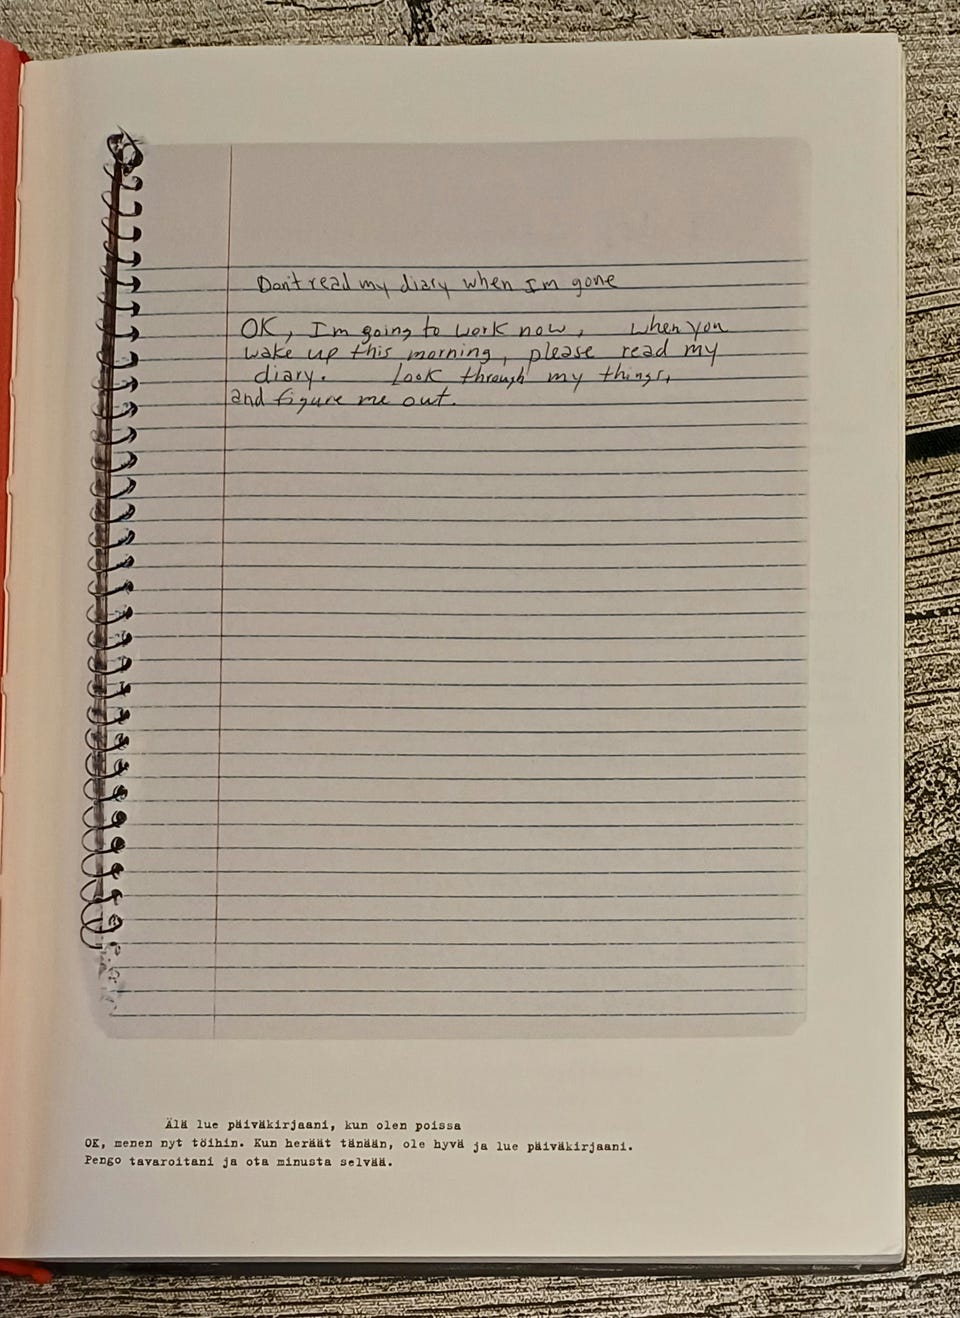 Don't read my diary when I'm gone
OK, I'm going to work now, when you
wake up this morning, please read my
diary. Look through my things,
and figure me out.
Älä lue päiväkirjaani, kun olen poissa
OK, menen nyt töihin. Kun heräät tänään, ole hyvä ja lue päiväkirjaani.
Pengo tavaroitani ja ota minusta selvää.